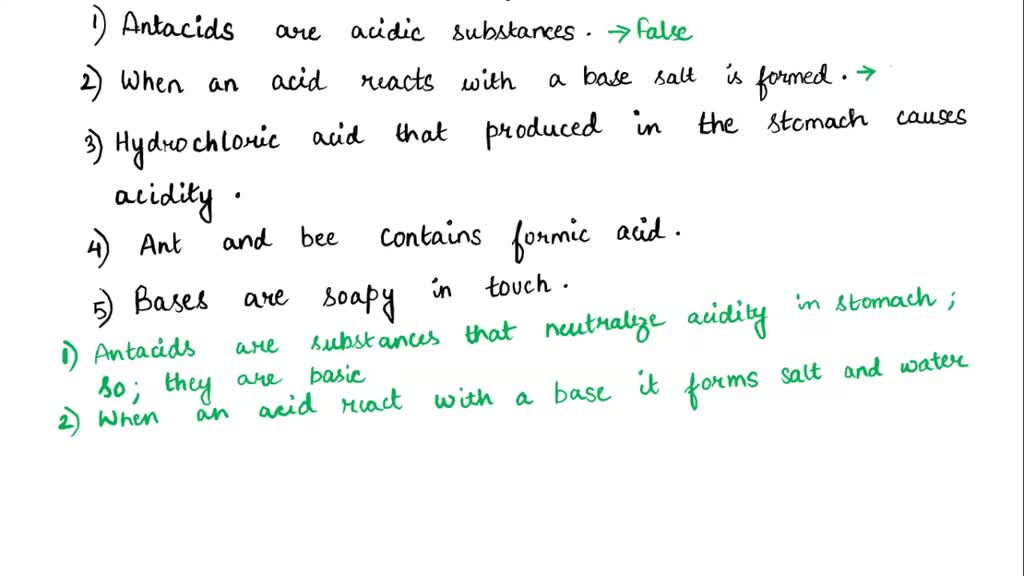 1) Antacids are acidic substances. → False
2) When an acid reacts with a base salt is formed. →
3) Hydrochloric acid that produced in the stomach causes
acidity.
4) Ant and bee contains formic acid.
5) Bases are soapy in touch.
1) Antacids are substances that neutralize acidity in stomach;
so; they are basic
2) When an acid react with a base it forms salt and water